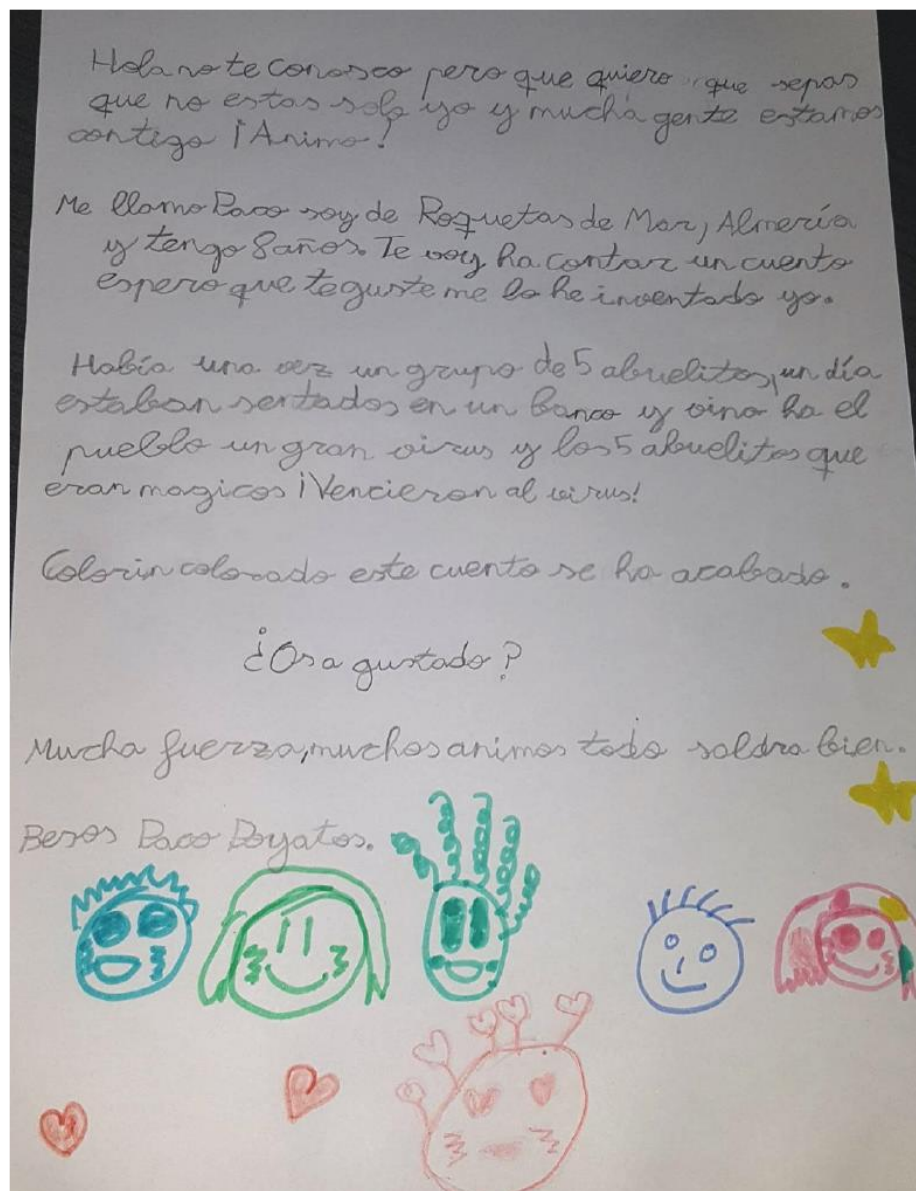 Hola no te conosco pero que quiero que sepas
que no estas solo yo y mucha gente estamos
contigo ¡Animo!
Me llamo Paco soy de Roquetas de Mar, Almería
y tengo 8 años. Te voy ha contar un cuento
espero que te guste me lo he inventado yo.
Había una vez un grupo de 5 abuelitos, un día
estaban sentados en un banco y vino ha el
pueblo un gran virus y los 5 abuelitos que
eran magicos ¡Vencieron al virus!
Colorin colorado este cuento se ha acabado.
¿Os a gustado?
Mucha fuerza, muchos animos todo saldra bien.
Besos Paco Poyatos.